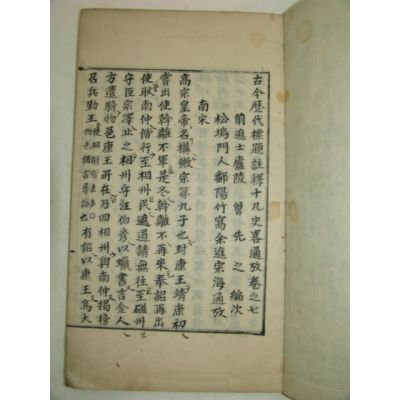 古今歷代標題註釋十九史畧通攷卷之七
前進士廬陵曾先之編次
松塢門人鄱陽竹窩余進宗海通攷
南宋
高宗皇帝名構徽宗第九子也封康王靖康初
嘗出使斡離不軍是冬斡離不再來奉詔再出
使耿南仲偕行至相州民遮道請無往至磁州
守臣宗澤止之相州守汪伯彦以蠟書言金人
方遣騎物色康王所在乃回相州與南仲揭榜
召兵勤王
也有詔以康王爲大